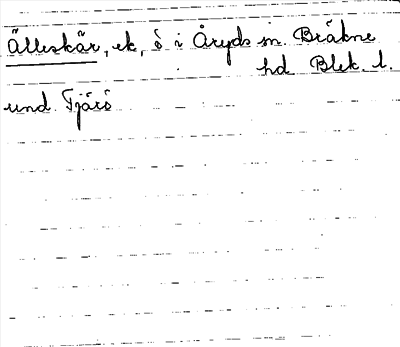 Älleskär, ek, ö i Åryds sn. Bräkne
hd Blek. l.
und. Tjärö